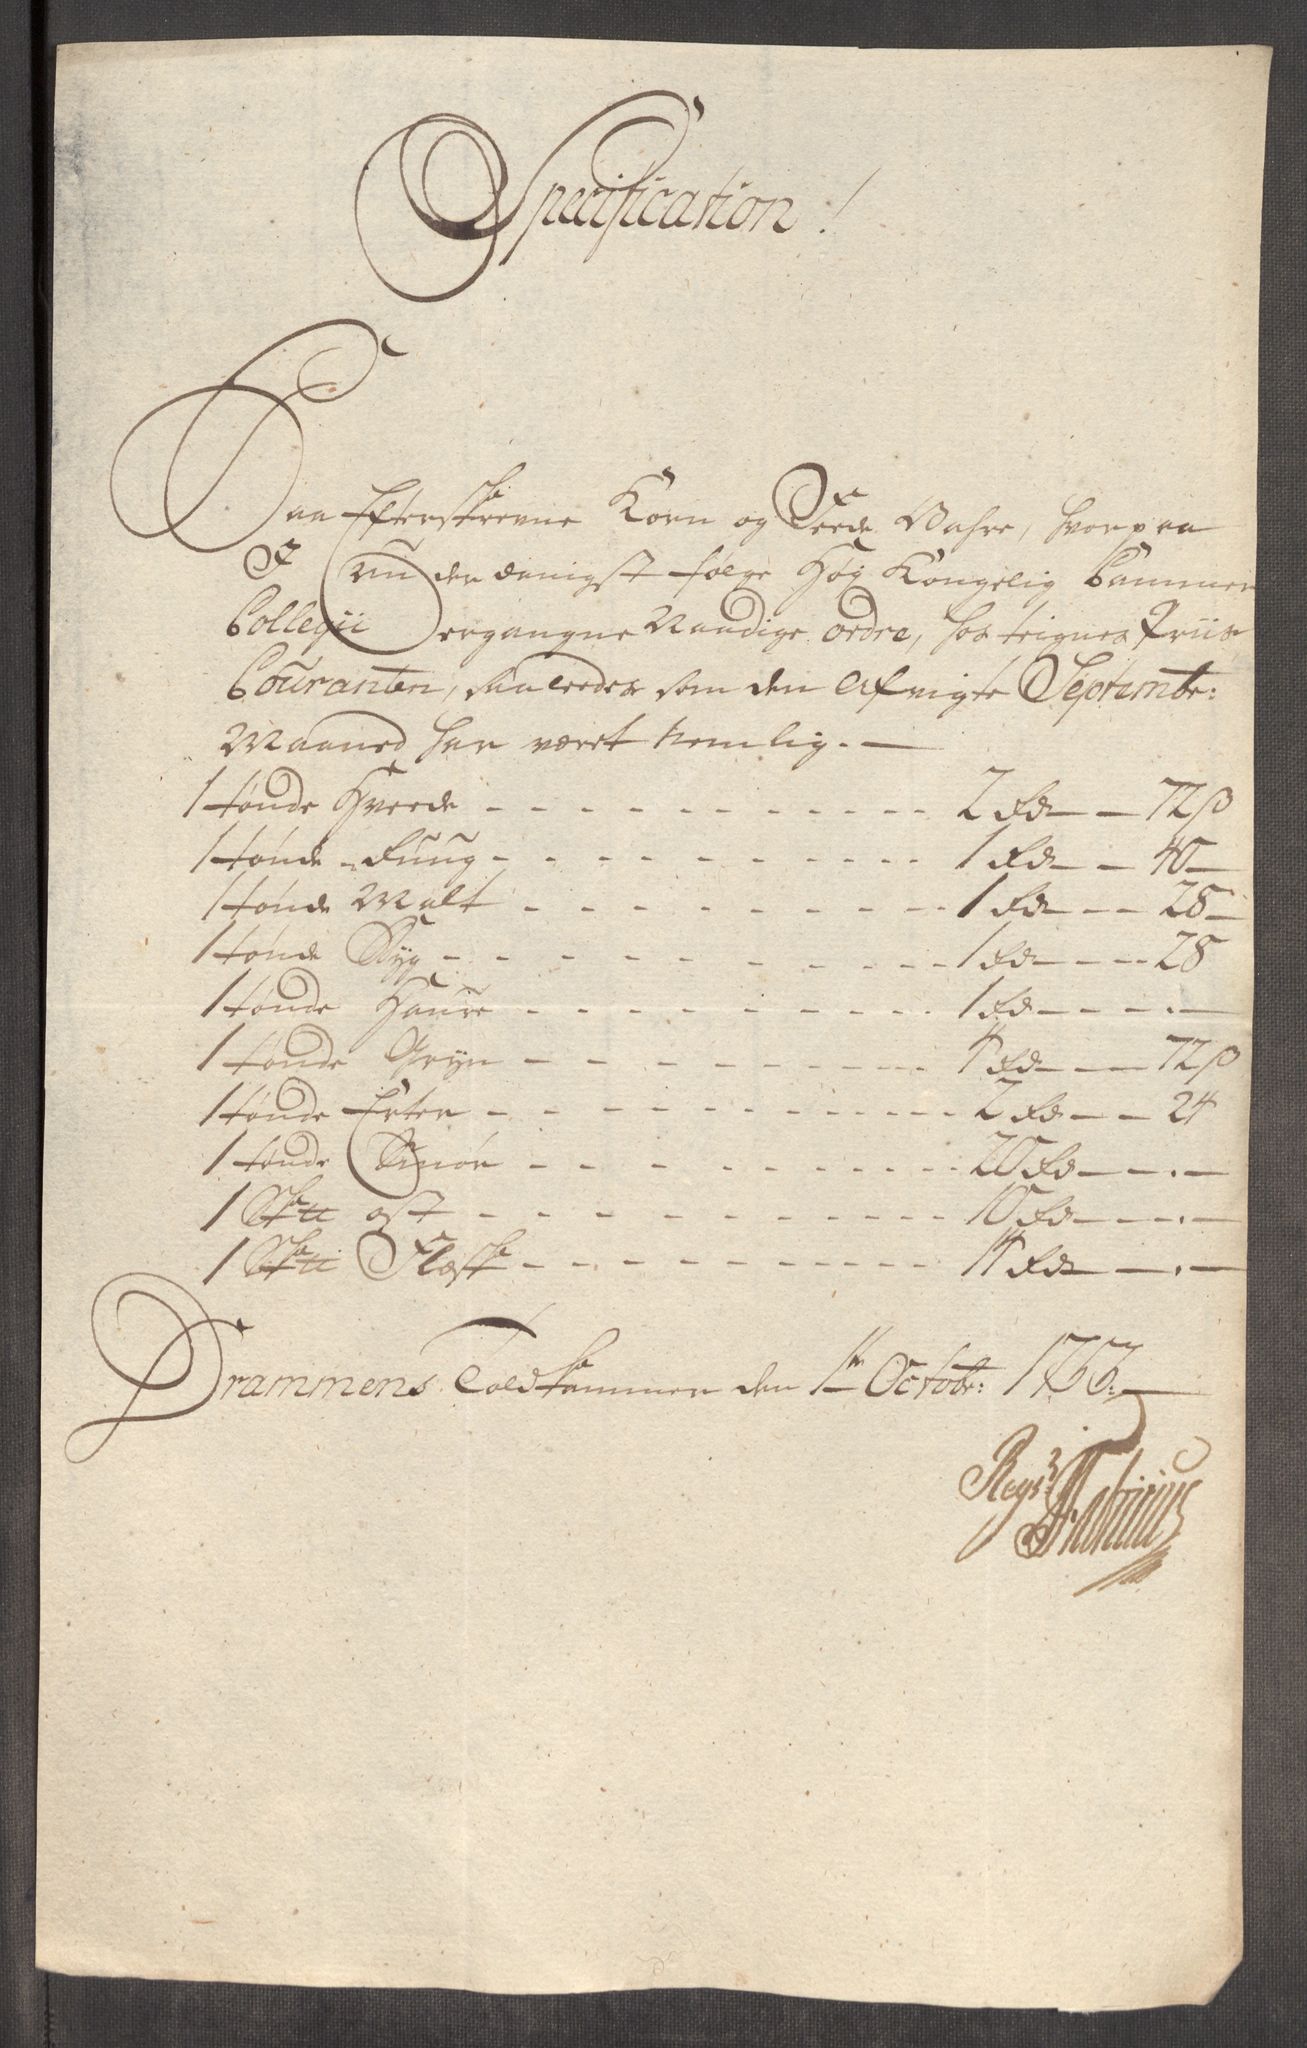 Specification!
Paa Efterskrevne Korn og Feede Vahre, hvorpaa
I Underdanigst følge Høy Kongelig Cammer
Collegii ergangne Naadige ordre, hos teignes Priis
Couranten, saaledes som den Afvigte Septembr:
Maaned har været Nemlig. —
1 tønde Hveede - - - 2 Rd — 72 ß
1 tønde Ruug - - - 1 Rd — 40 —
1 tønde Malt - - - 1 Rd — 28 —
1 tønde Byg - - - 1 Rd — 28
1 tønde Haure - - - 1 Rd — . —
1 tønde Gryn - - - 4 Rd — 72 ß
1 tønde Erter - - - 2 Rd — 24
1 tønde Smør - - - 20 Rd — . —
1 Sk℔ ost - - - 10 Rd — . —
1 Sk℔ Flæsk - - - 14 Rd — . —
Drammens Toldkammer den 1te Octobr: 1767. —